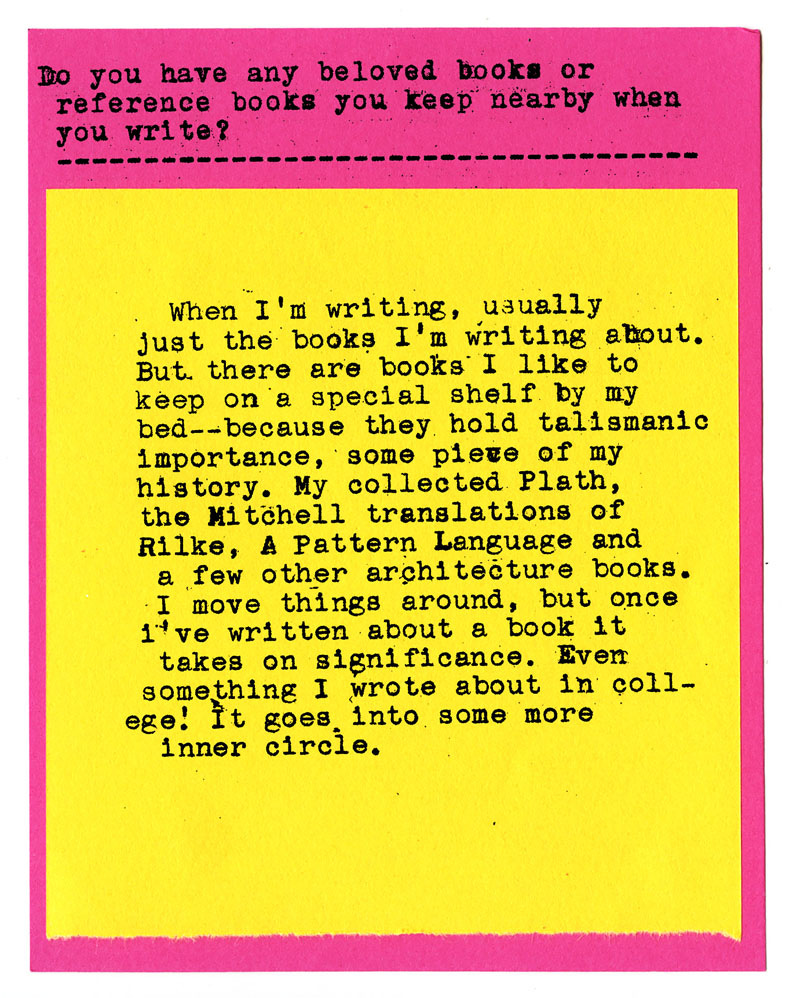 Do you have any beloved books or
reference books you keep nearby when
you write?
---------------------------------------
When I'm writing, usually
just the books I'm writing about.
But there are books I like to
keep on a special shelf by my
bed--because they hold talismanic
importance, some piece of my
history. My collected Plath,
the Mitchell translations of
Rilke, A Pattern Language and
a few other architecture books.
I move things around, but once
i've written about a book it
takes on significance. Even
something I wrote about in coll-
ege! It goes into some more
inner circle.